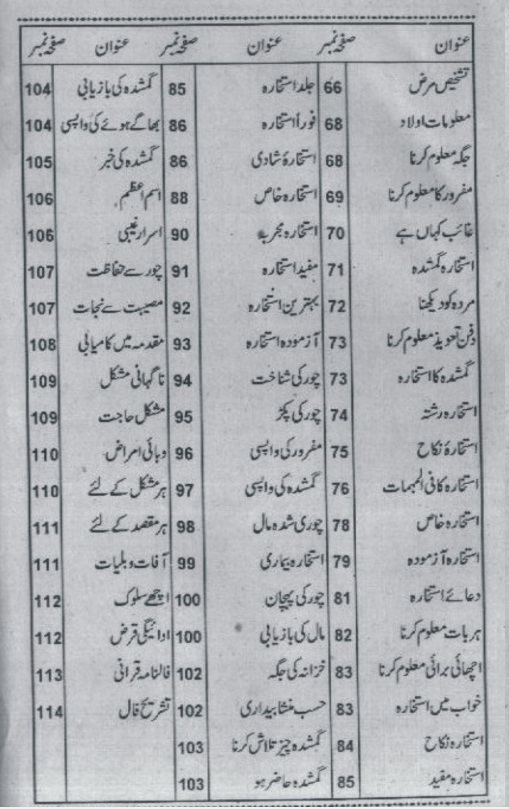 عنوان صفحہ نمبر عنوان صفحہ نمبر عنوان صفحہ نمبر
تشخیص مرض 66 جلد استخارہ 85 گمشدہ کی بازیابی 104
معلومات اولاد 68 فوراً استخارہ 86 بھاگے ہوئے کی واپسی 104
جگہ معلوم کرنا 68 استخارۂ شادی 86 گمشدہ کی خبر 105
مفرور کا معلوم کرنا 69 استخارہ خاص 88 اسم اعظم 106
غائب کہاں ہے 70 استخارہ مجربہ 90 اسرار غیبی 106
استخارہ گمشدہ 71 مفید استخارہ 91 چور سے حفاظت 107
مردہ کو دیکھنا 72 بہترین استخارہ 92 مصیبت سے نجات 107
دفن تعویذ معلوم کرنا 73 آزمودہ استخارہ 93 مقدمہ میں کامیابی 108
گمشدہ کا استخارہ 73 چور کی شناخت 94 ناگہانی مشکل 109
استخارہ رشتہ 74 چور کی پکڑ 95 مشکل حاجت 109
استخارۂ نکاح 75 مفرور کی واپسی 96 وبائی امراض 110
استخارہ کافی المہمات 76 گمشدہ کی واپسی 97 ہر مشکل کے لئے 110
استخارہ خاص 78 چوری شدہ مال 98 ہر مقصد کے لئے 111
استخارہ آزمودہ 79 استخارہ بیماری 99 آفات و بلیات 111
دعائے استخارہ 81 چور کی پہچان 100 اچھے سلوک 112
ہر بات معلوم کرنا 82 مال کی بازیابی 100 ادائیگی قرض 112
اچھائی برائی معلوم کرنا 83 خزانہ کی جگہ 102 فالنامہ قرآنی 113
خواب میں استخارہ 83 حسب منشا بیداری 102 تشریح فال 114
استخارہ نکاح 84 گمشدہ چیز تلاش کرنا 103
استخارہ مفید 85 گمشدہ حاضر ہو 103